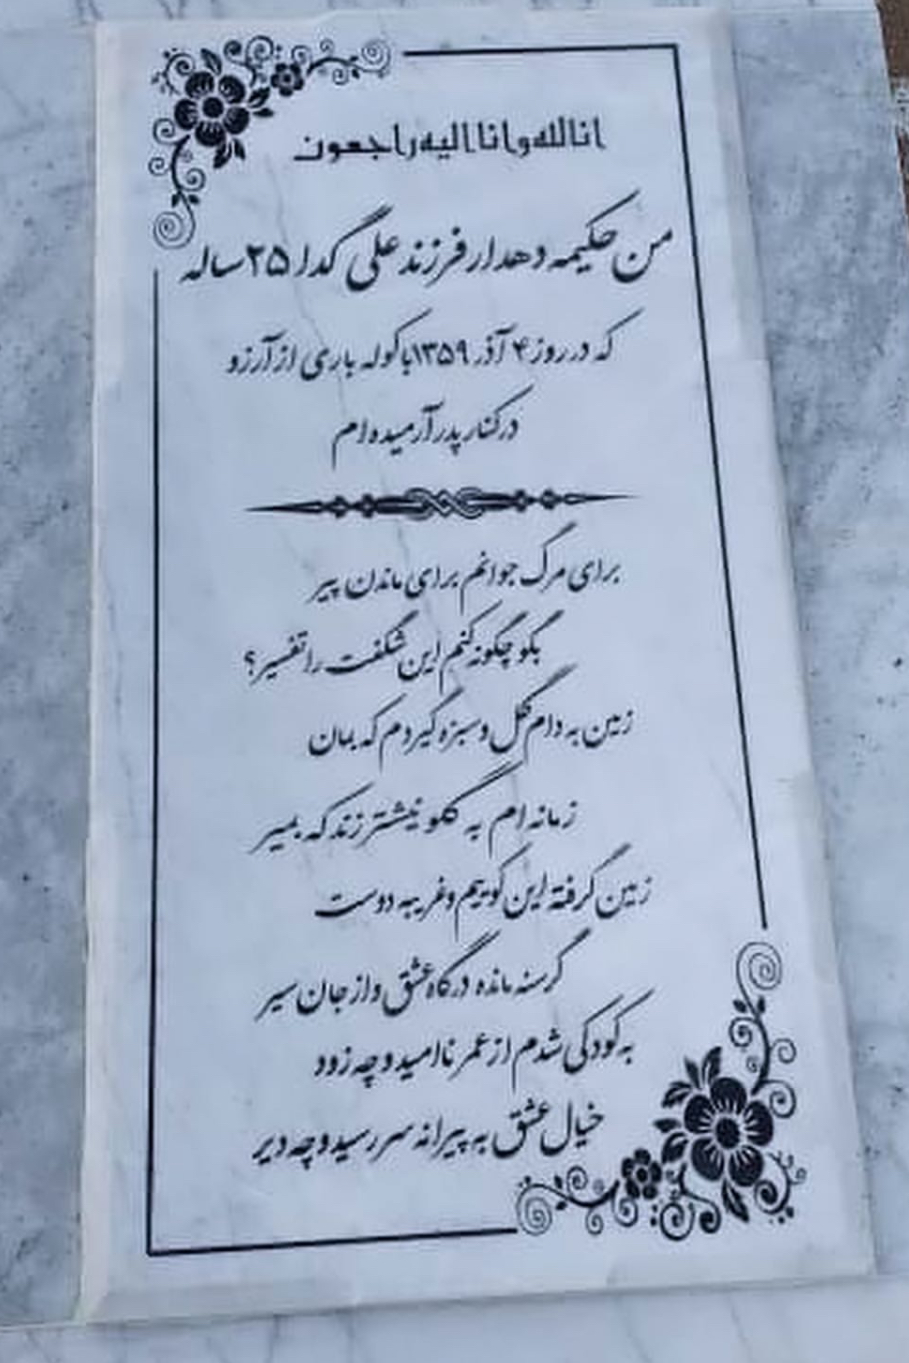 انا لله و انا الیه راجعون
من حکیمه دهدار فرزند علی گدا ۲۵ ساله
که در روز ۴ آذر ۱۳۵۹ با کوله باری از آرزو
در کنار پدر آرمیده ام
برای مرگ جوانم برای ماندن پیر
بگو چگونه کنم این شگفت را تفسیر؟
زمین به دام گل و سبزه گیردم که بمان
زمانه ام به گلو نیشتر زند که بمیر
زمین گرفته این کوییم و غریبه دوست
گرسنه مانده درگاه عشق و از جان سیر
به کودکی شدم از عمر ناامید و چه زود
خیال عشق به پیرانه سر رسید و چه دیر